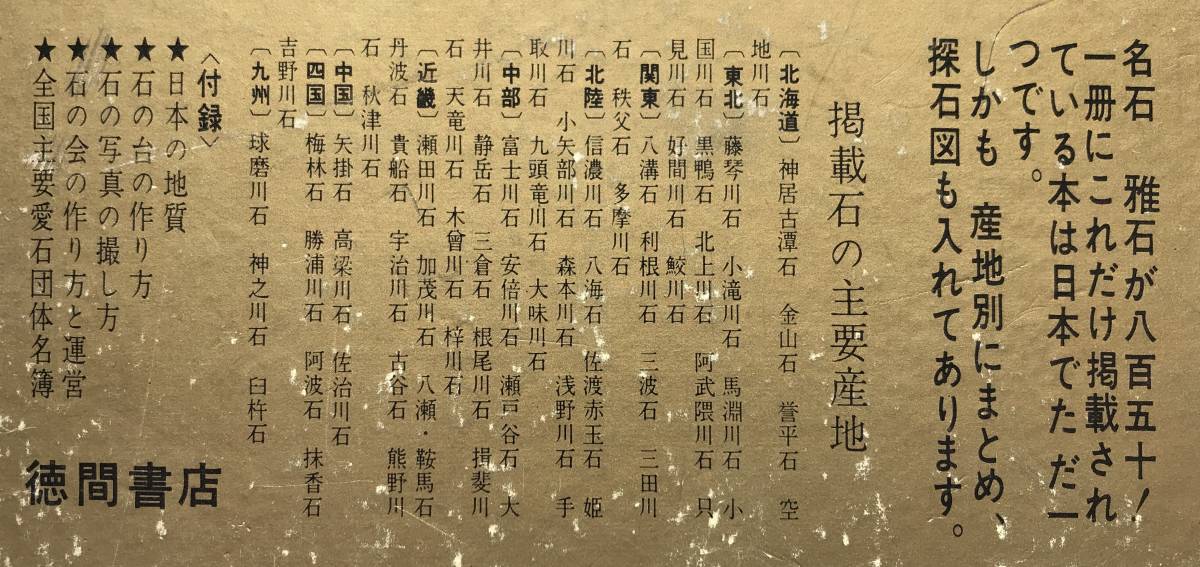 名石 雅石が八百五十！
一冊にこれだけ掲載され
ている本は日本でただ一
つです。
しかも 産地別にまとめ、
探石図も入れてあります。
掲載石の主要産地
〔北海道〕神居古潭石 金山石 誉平石 空
地川石
〔東北〕藤琴川石 小滝川石 馬淵川石 小
国川石 黒鴨石 北上川石 阿武隈川石 只
見川石 好間川石 鮫川石
〔関東〕八溝石 利根川石 三波石 三田川
石 秩父石 多摩川石
〔北陸〕信濃川石 八海石 佐渡赤玉石 姫
川石 小矢部川石 森本川石 浅野川石 手
取川石 九頭竜川石 大味川石
〔中部〕富士川石 安倍川石 瀬戸谷石 大
井川石 静岳石 三倉石 根尾川石 揖斐川
石 天竜川石 木曾川石 梓川石
〔近畿〕瀬田川石 加茂川石 八瀬・鞍馬石
丹波石 貴船石 宇治川石 古谷石 熊野川
石 秋津川石
〔中国〕矢掛石 高梁川石 佐治川石
〔四国〕梅林石 勝浦川石 阿波石 抹香石
吉野川石
〔九州〕球磨川石 神之川石 臼杵石
〈付録〉
★日本の地質
★石の台の作り方
★石の写真の撮し方
★石の会の作り方と運営
★全国主要愛石団体名簿
徳間書店